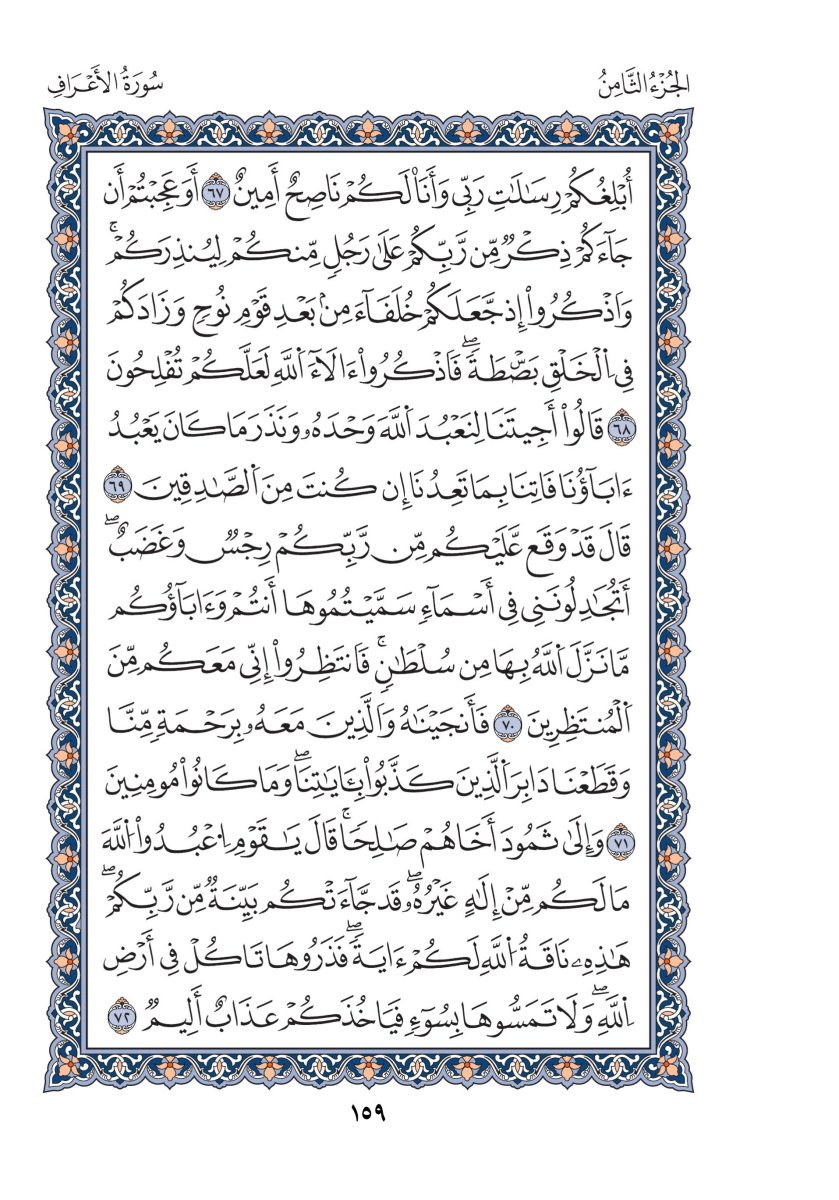 الجُزْءُ الثَّامِنُ
سُورَةُ الأَعْرَافِ
أُبْلِغُكُمْ رِسَالَاتِ رَبِّى وَأَنَا۠ لَكُمْ نَاصِحٌ أَمِينٌ ٦٧ أَوَعَجِبْتُمْ أَن
جَآءَكُمْ ذِكْرٌ مِّن رَّبِّكُمْ عَلَىٰ رَجُلٍ مِّنكُمْ لِيُنذِرَكُمْ ۚ
وَاذْكُرُوا۟ إِذ جَّعَلَكُمْ خُلَفَآءَ مِنۢ بَعْدِ قَوْمِ نُوحٍ وَزَادَكُمْ
فِى اَ۬لْخَلْقِ بَصْۜطَةً ۖ فَاذْكُرُوا۟ ءَالَآءَ اَ۬للَّهِ لَعَلَّكُمْ تُفْلِحُونَ
٦٨ قَالُوا۟ أَجِيتَنَا لِنَعْبُدَ اَ۬للَّهَ وَحْدَهُۥ وَنَذَرَ مَا كَانَ يَعْبُدُ
ءَابَآؤُنَا فَاتِنَا بِمَا تَعِدُنَا إِن كُنتَ مِنَ اَ۬لصَّادِقِينَ ٦٩
قَالَ قَدْ وَقَع عَّلَيْكُم مِّن رَّبِّكُمْ رِجْسٌ وَغَضَبٌ ۖ
أَتُجَادِلُونَنِى فِى أَسْمَآءٍ سَمَّيْتُمُوهَا أَنتُمْ وَءَابَآؤُكُم
مَّا نَزَّلَ اَ۬للَّهُ بِهَا مِن سُلْطَانٍ ۚ فَانتَظِرُوا۟ إِنِّى مَعَكُم مِّنَ
اَ۬لْمُنتَظِرِينَ ٧٠ فَأَنجَيْنَاهُ وَالَّذِينَ مَعَهُۥ بِرَحْمَةٍ مِّنَّا
وَقَطَعْنَا دَابِرَ اَ۬لَّذِينَ كَذَّبُوا۟ بِـَٔايَاتِنَا ۖ وَمَا كَانُوا۟ مُومِنِينَ
٧١ وَإِلَىٰ ثَمُودَ أَخَاهُمْ صَالِحًا ۚ قَالَ يَاقَوْمِ اِ۟عْبُدُوا۟ اُ۬للَّهَ
مَا لَكُم مِّنْ إِلَٰهٍ غَيْرُهُۥ ۖ قَد جَّآءَتْكُم بَيِّنَةٌ مِّن رَّبِّكُمْ ۖ
هَٰذِهِۦ نَاقَةُ اُ۬للَّهِ لَكُمْ ءَايَةً ۖ فَذَرُوهَا تَاكُلْ فِى أَرْضِ
اِ۬للَّهِ ۖ وَلَا تَمَسُّوهَا بِسُوٓءٍ فَيَاخُذَكُمْ عَذَابٌ أَلِيمٌ ٧٢
١٥٩